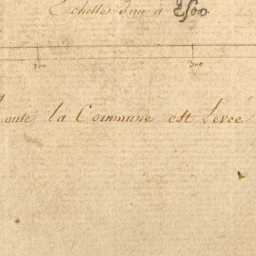 Echelles d'un à 2500
100 200
Toute la Commune est Levée